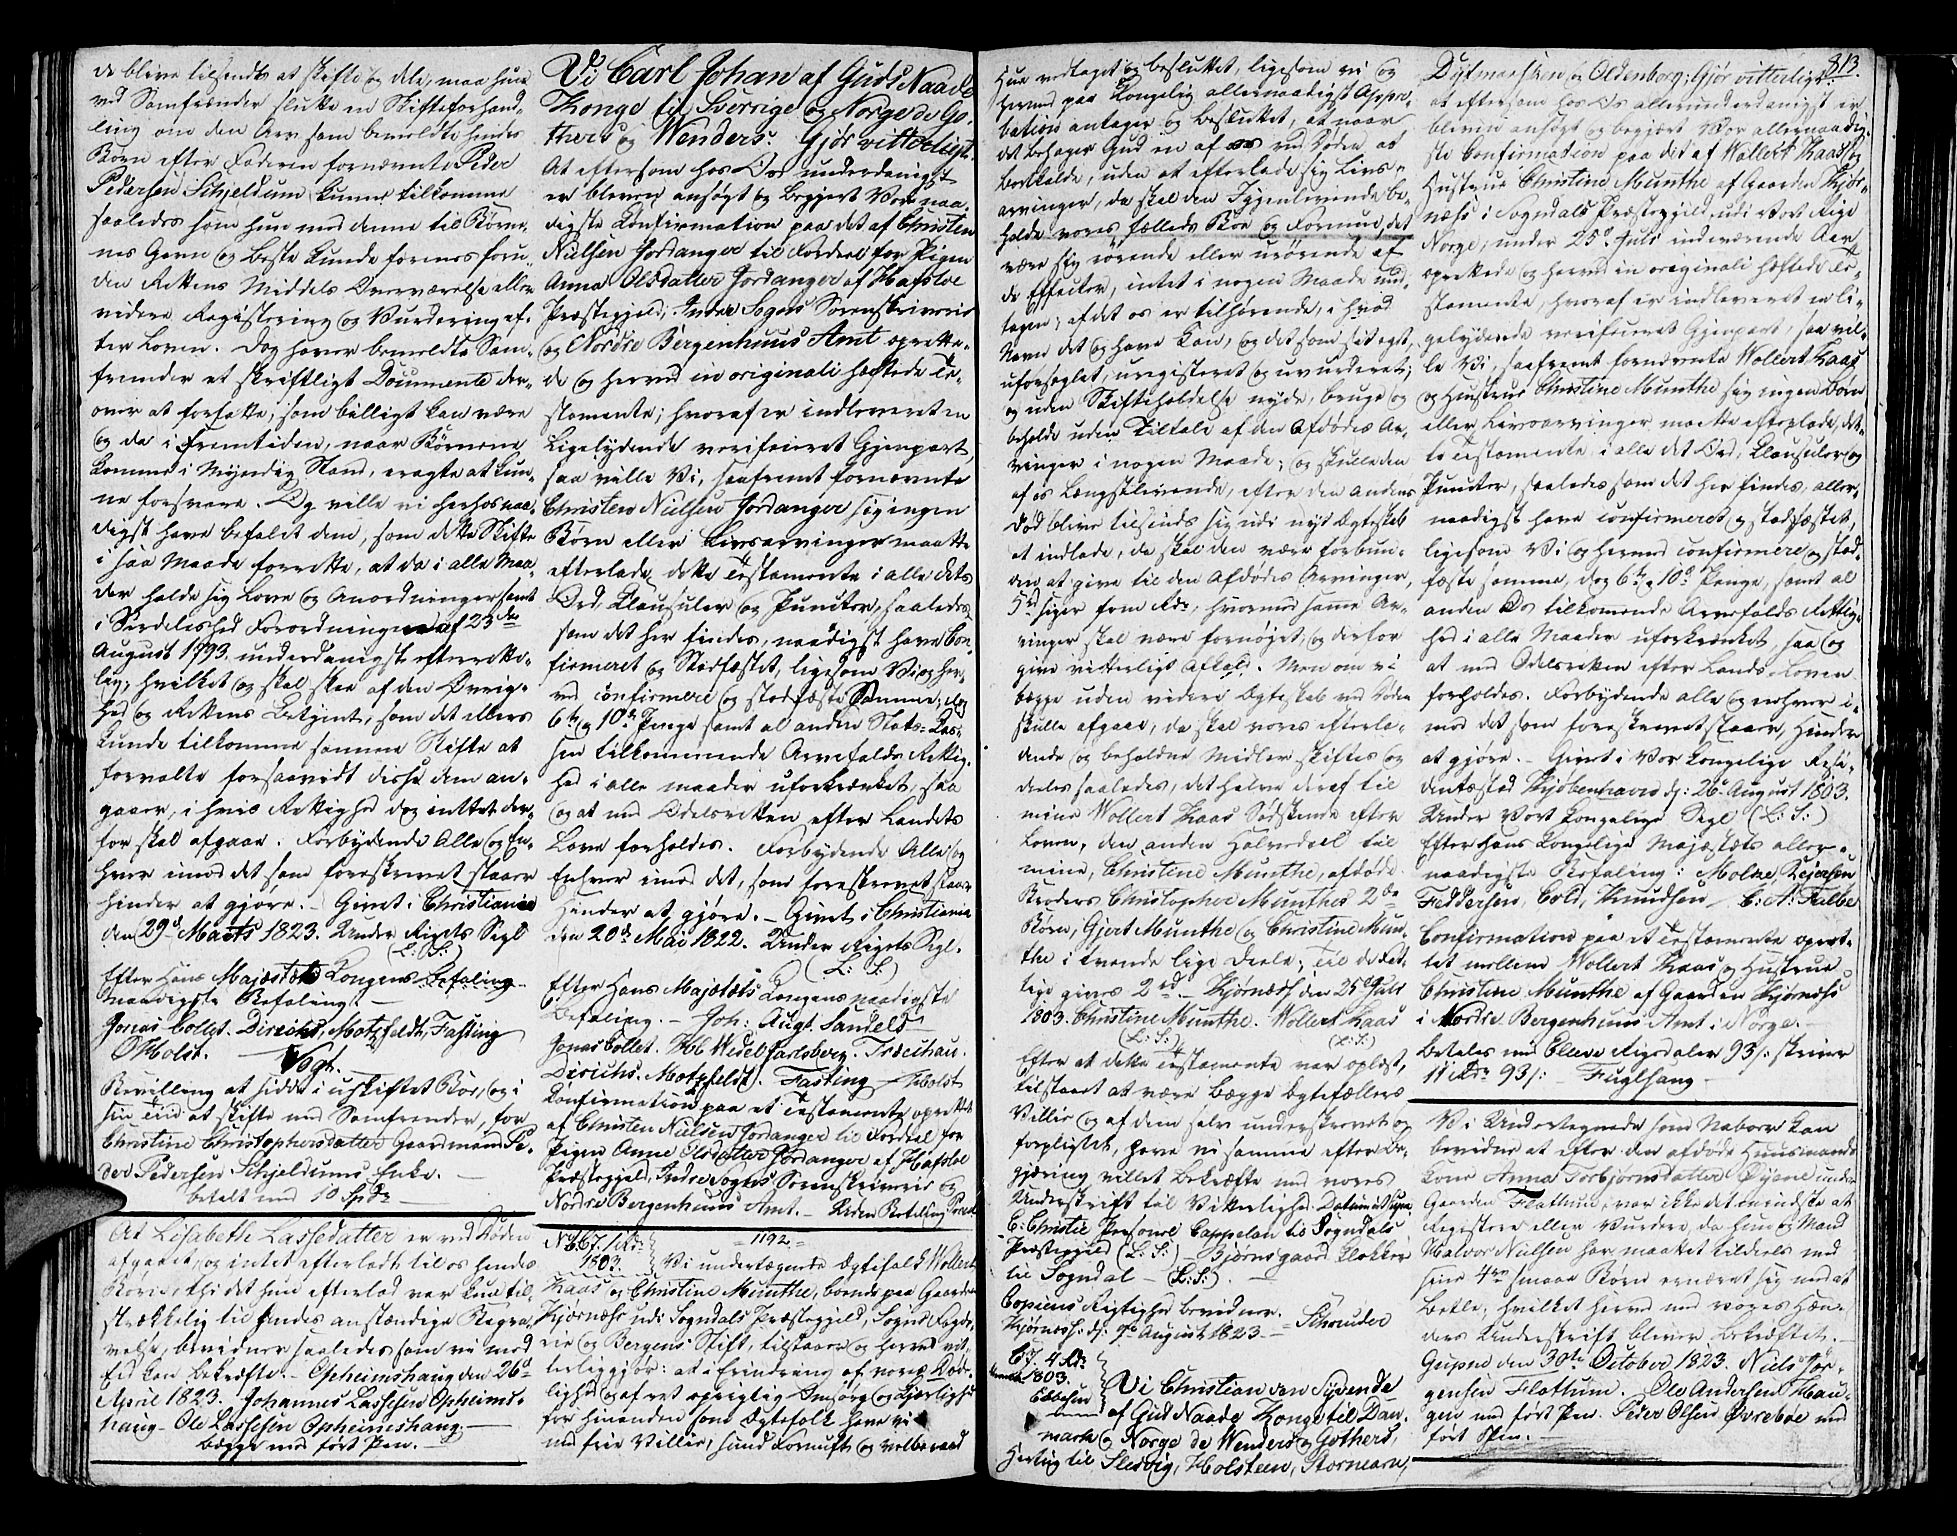 de blive tilsendt at skifte og dele, maa hun
ved Samfrænder slutte en Skifteforhand-
ling om den Arv som bemeldte hendes
Børn efter Faderen fornævnte Peder
Pedersen Schjeldum kunne tilkomme
saaledes som hun med denne til Børne-
nes Gavn og beste kunde formes foru-
den Rettens Middels Overværelse eller
videre Registering og Vurdering ef-
ter Loven. Dog haver bemeldte Sam-
frender et skriftligt Documente der-
over at forfatte, som billigt kan være
og de i Fremtiden, naar Børnene
komme i Myndig Stand, eragte at kun-
ne forsvare. Og ville vi herhos naa-
digst have befalet dem, som dette Skifte
i saa Maade forrette, at de i alle Maa-
der holde sig Love og Anordninger samt
i Særdeleshed Forordningen af 23de
August 1793, underdanigst efterrette-
lig; hvilket og skal skee af den Øvrig-
hed og Rettens Betjent, som det ellers
kunde tilkomme samme Skifte at
forvalte forsaavidt disse dem an-
gaaer, i hvis Rettighed dog intet der-
for skal afgaae. Forbydende Alle og En-
hver imod det som foreskrevet staaer
Hinder at gjøre. – Givet i Christiania
den 29d Marts 1823. Under Rigets Segl
(L: S:)
Efter Hans Majestæt Kongens Befaling
Naadigste Befaling. –
Jonas Collet. Diriks, Motzfeldt, Fasting
O Holst. Vogt.
Bevilling at sidde i uskiftet Boe, og i
sin Tid at skifte med Samfrender, for
Christine Christophersdatter Gaardmand Pe-
der Pedersen Schjeldums Enke.
betalt med 10 Spd
At Lisabethe Lassedatter er ved Døden
afgaaet, og intet efterladt til os hendes
Børn, thi det hun efterlod var kun til-
strækkelig til hendes anstændige Begra-
velse, bevidner saaledes som vi med
Eed kan bekræfte. – Opheimshaug den 26d
April 1823. Johannes Lassesen Opheims-
haug – Ole Lassesen Opheimshaug –
begge med ført Pen. –
Vi Carl Johan af Guds Naade
Konge til Sverrige og Norge de Go-
thers og Wenders. Gjør vitterligt.
At eftersom hos Os underdanigst
er bleven ansøgt og begjert Vor naa-
digste Confirmation paa det af Christen
Nielsen Jordanger til Fordeel for Pigen
Anna Olsdatter Jordanger af Hafsloe
Præstegjeld, Indre Sogns Sorenskriverie
og Nordre Bergenhuus Amt oprette-
de og herved in originali hæftede Te-
stamente; hvoraf er indleveret en
Ligelydende verificeret Gjenpart,
saa ville Vi, saafremt fornævnte
Christen Nielsen Jordanger sig ingen
Børn eller Livsarvinger maatte
efterlade dette Testamente i alle dets
Ord, Clausuler og Puncter, saaledes
som det her findes, naadigst have Con-
firmeret og Stadfæstet, ligesom Vi og her-
ved confirmere og stadfæste Samme; dog
6te og 10de Penge samt al anden Stats-Kas-
sen tilkommende Arvefalds Rettig-
hed i alle maader uforkrænket, saa
og at med Odelsretten efter Landets
Love forholdes. Forbydende Alle og
Enhver imod det, som foreskrevet staaer
Hinder at gjøre. – Givet i Christiania
den 20de Mai 1822. Under Rigets Segl.
(L: S:)
Efter Hans Majetæts Kongens naadigste
Befaling. – Joh: Augt. Sandels
Jonas Collet. Hbl Wedel Jarlsberg. Treschau.
Dirichs. Motzfeldt. Fasting Holst
Confirmation paa et Testamente oprettet
af Christen Nielsen Jordanger til Fordeel for
Pigen Anne Olsdatter Jordanger af Hafsloe
Præstegjeld, Indre Sogns Sorenskriverie og
Nordre Bergenhuus Amt. –
No 67. 1 Rd
1803.
1192
Vi undertegnede Ægtefolk Wollert
Kaas og Christine Munthe, boende paa Gaarden
Kjørnæss udi Sogndals Præstegjeld, Sogns Fogde-
rie og Bergens Stift, tilstaaer og herved vit-
terliggjør: at i Erindring af vores Døde-
lighed og af ret oprigtig Omsorg og Kjerlighed
for hinanden som Ægtefolk have vi
med frie Villie, sund Fornuft og velberaad
813.
Hue vedtaget og besluttet, ligesom vi og
herved paa Kongelig allernaadigst Appro-
bation antager og besluttet, at naar
det behager Gud en af os ved Døden at
bortkalde, uden at efterlade sig Livs-
arvinger, da skal den Igjenlevende be-
holde vores fælleds Boe og Formue, det
være sig rørende eller urørende af
de Effecter, intet i nogen Maade und-
tagen; af det os er tilhørende, i hvad
Navn det og have kan, og det som sit eget,
uforseglet, uregistreret og uvurderet;
og uden Skifteholdelse nyde, bruge og
beholde uden Tiltale af den Afdødes Ar-
vinger i nogen Maade; og skulle den
af os Længstlevende, efter den andens
Død blive tilsinds sig udi nyt Ægteskab
at indlade, da skal den være forbun-
den at give til den Afdødes Arvinger,
5d siger fem Rdr, hvormed samme Ar-
vinger skal være fornøjet, og derfor
give vitterligt Afkald. Men om vi
begge uden videre Ægteskab ved Døden
skulle afgaae, da skal vores efterla-
dende og beholdne Midler skiftes og
deeles saaledes, det halve deraf til
mine Wollert Kaas Sødskende efter
Loven, den anden Halvedeel til
mine, Christine Munthe, afdøde
Broders Christopher Munthes 2de
Børn, Gjert Munthe og Christine Mun-
the i tvende lige Deele; til de Fat-
tige gives 2d – Kjørnæss den 25d Juli
1803. Christine Munthe. Wollert Kaas
(L: S:) (L: S:)
Efter at dette Testamente var oplæst,
tilstaaet at være begge Ægtefælles
Villie og af dem selv underskrevet og
forseglet, have vi samme efter Be-
gjæring villet bekræfte med vores
Underskrift til Vitterlighed. Datum ut supra
C: Christie Personel Cappelan til Sogndals
Præstegjeld (L: S:) – Bjørnsgaard Klokker
til Sogndal – (L: S:)
Copiens Rigtighed bevidner.
Kjørnæss: dj: 9de August 1823. – Schrøder
67. 4 Rd.
1803.
Ebbesen
Vi Christian den Syvende
af Guds Naade Konge til Dan-
mark og Norge de Wenders og Gothers,
Hertug til Slesvig, Holsteen, Stormarn,
Dytmarsken og Oldenborg; Gjør vitterligt:
at eftersom hos Os allerunderdanigst er
bleven ansøgt og begjært Vor allernaadig-
ste Confirmation paa det af Wollert Kaas og
Hustrue Christine Munthe af Gaarden Kjør-
næss i Sogndals Præstegjeld udi Vort Rige
Norge, under 25d Juli indeværende Aar
oprettede og herved in originali hæftede Te-
stamente, hvoraf er indleveret en li-
gelydende verificeret Gjenpart, saa vil-
le Vi, saafremt fornævnte Wollert Kaas
og Hustrue Christine Munthe sig ingen Børn
eller Livsarvinger maatte efterlade, det-
te Testamente i alle det Ord, Clausuler og
Puncter, saaledes som det her findes, aller-
naadigst have confirmeret og stadfæstet,
ligesom Vi og herved confirmere og stad-
fæste samme, dog 6te og 10de Penge, samt al
anden Os tilkomende Arvefalds Rettig-
hed i alle Maader uforkrænket, saa og
at med Odelsretten efter Lands-Loven
forholdes. Forbydende alle og enhver i-
mod det som foreskrevet staaer, Hinder
at gjøre. – Givet i Vor Kongelige Resi-
dentzstad Kjøbenhavn dj: 26d August 1803.
Under Vort Kongelige Segl (L: S:)
Efter Hans Kongelige Majæstæts aller-
naadigste Befaling: Molke, Reiersen
Feddersen, Cold, Knudsen C: A: Falbe
Confirmation paa et Testamente opret-
tet mellem Wollert Kaas og Hustrue
Christine Munthe af Gaarden Kjørness
i Nordre Bergenhuus Amt i Norge. –
betales med Elleve Rigsdaler 93 s. skriver
11 Rdr 93 s: – Fuglsang –
Vi Undertegnede som Naboer kan
bevidne at efter den afdøde Huusmands
Kone Anna Torbjørnsdatter Øyene under
Gaarden Flattum, var ikke det mindste at
Registere eller Vurdere, da hun og Mand
Halvor Nielsen har maattet tildeels med
sine 4re smaae Børn ernæret sig med at
betle; hvilket herved med vores Hæn-
ders Underskrift bliver bekræftet. –
Gupne den 30te October 1823. Niels Jør-
gensen Flattum. Ole Andersen Hau-
gen med ført Pen. Peder Olsen Øvrebøe med
ført Pen. –